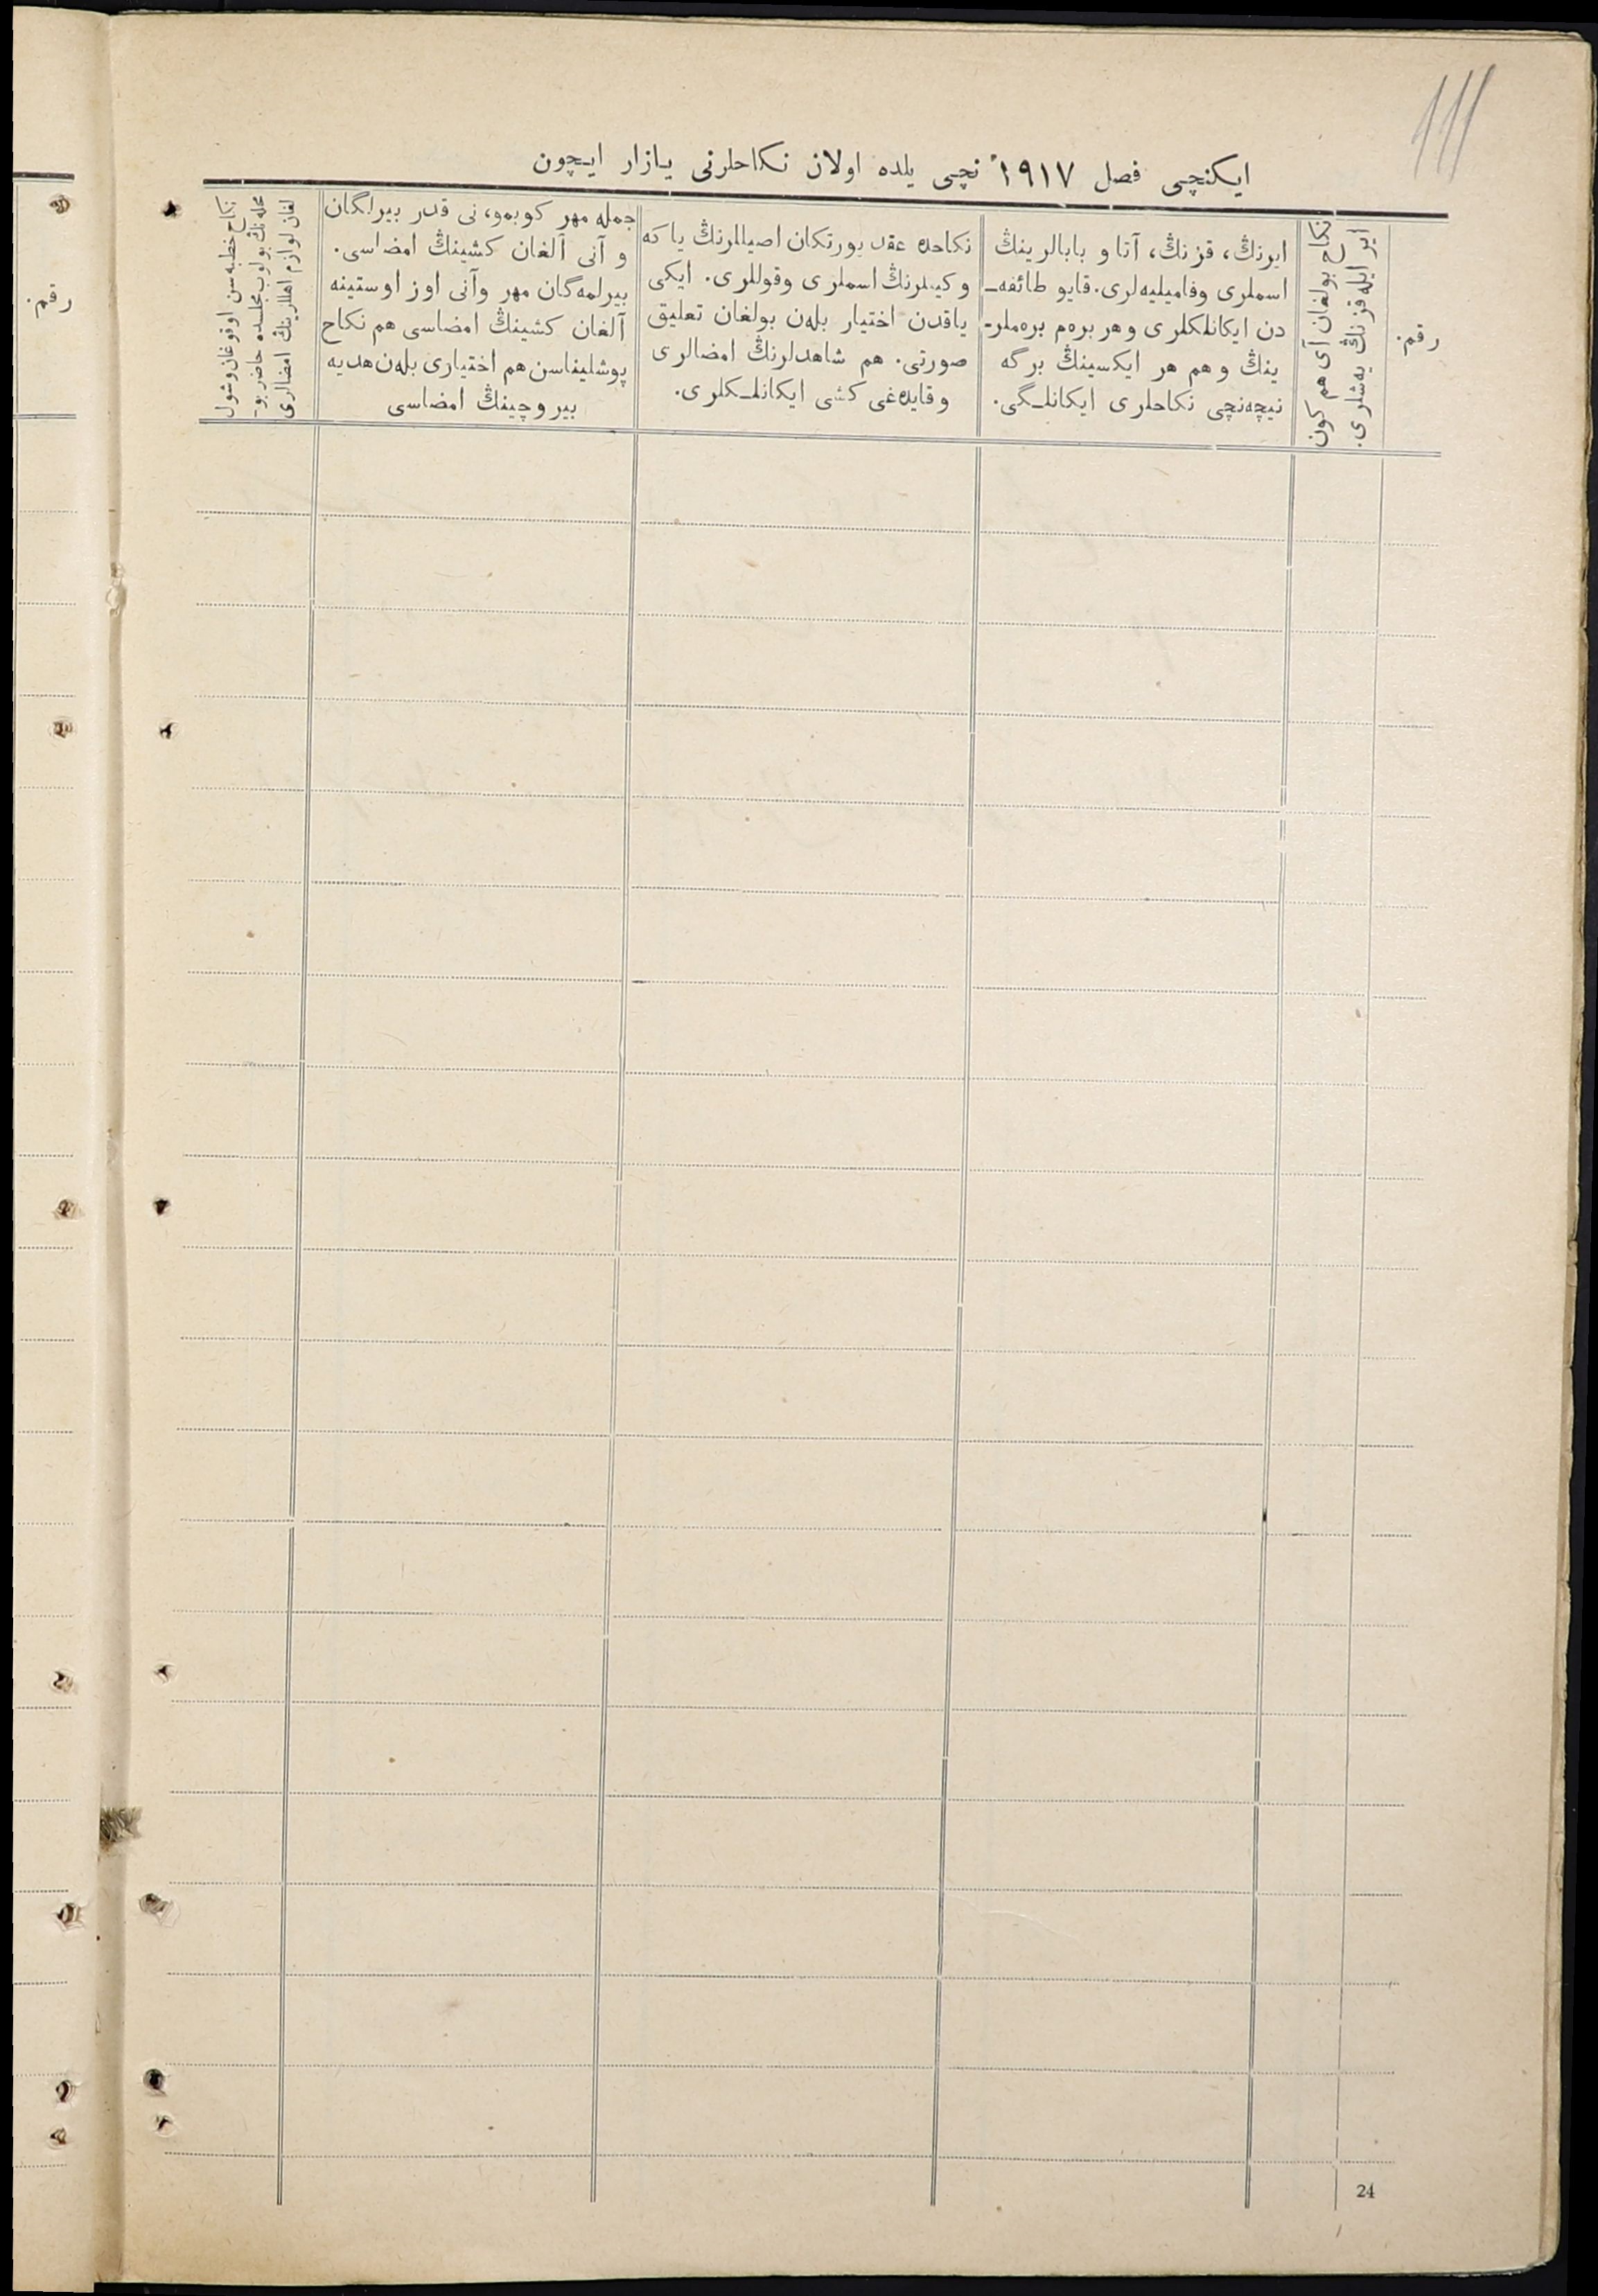 111
ایکنچی فصل ١٩١٧ نچی یلده اولان نکاحلرنی یازار ایچون
رقم.
نکاح بولغان آی هم کون
ایر ایله قز نڭ یه‌شلری.
ایرنڭ، قزنڭ، آتا و بابالرینڭ
اسملری وفامیلیه‌لری. قایو طائفه‌ـ
دن ایکانلکلری و هر بره‌م بره‌ملرـ
ینڭ و هم هر ایکسینڭ برگه
نیچه‌نچی نکاحلری ایکانلـگی.
نکاحده عقد یورتکان اصیللرنڭ یا که
وکیلرنڭ اسملری وقوللری. ایکی
یاقدن اختیار بله‌ن بولغان تعلیق
صورتی. هم شاهدلرنڭ امضالری
وقایده‌غی کشی ایکانلـکلری.
جمله مهر کوبمو، نی قدر بیرلگان
و آنی آلغان کشینڭ امضاسی.
بیرلمه‌گان مهر وآنی اوز اوستینه
آلغان کشینڭ امضاسی هم نکاح
پوشلیناسن هم اختیاری بله‌ن هدیه
بیروچینڭ امضاسی
نکاح خطبه‌سن اوقوغان وشول
محله‌نڭ بولوب مجلسده حاضر بو‌ـ
لغان لوازم اهللرینڭ امضالری
24
رقم.